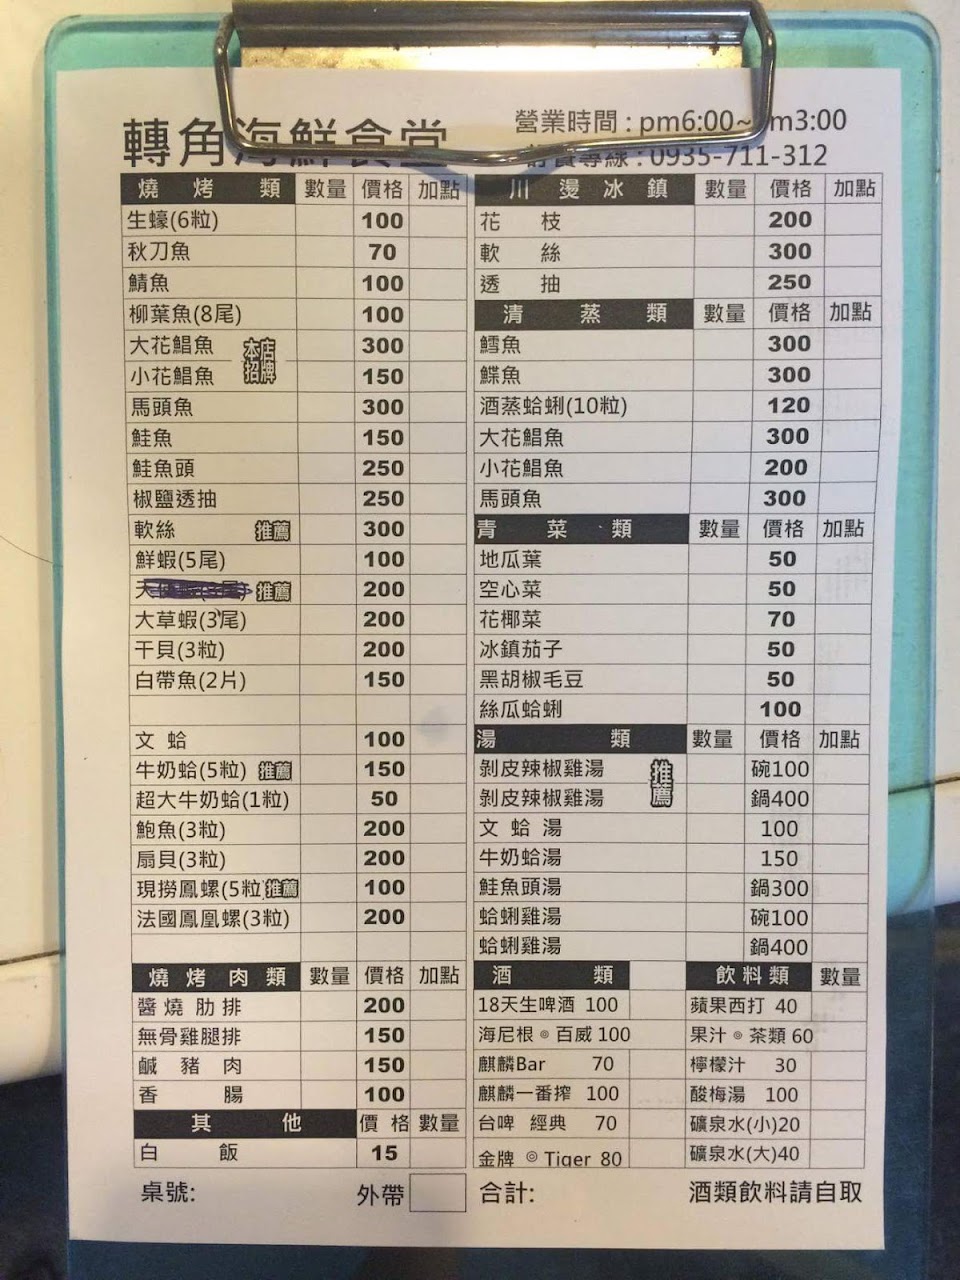 轉角海鮮食堂
營業時間 : pm6:00~am3:00
訂食專線 : 0935-711-312
燒 烤 類 數量 價格 加點
生蠔(6粒) 100
秋刀魚 70
鯖魚 100
柳葉魚(8尾) 100
大花鯧魚 300
本店招牌
小花鯧魚 150
馬頭魚 300
鮭魚 150
鮭魚頭 250
椒鹽透抽 250
軟絲 推薦 300
鮮蝦(5尾) 100
推薦 200
大草蝦(3尾) 200
干貝(3粒) 200
白帶魚(2片) 150
文 蛤 100
牛奶蛤(5粒) 推薦 150
超大牛奶蛤(1粒) 50
鮑魚(3粒) 200
扇貝(3粒) 200
現撈鳳螺(5粒 推薦 100
法國鳳凰螺(3粒) 200
燒 烤 肉 類 數量 價格 加點
醬 燒 肋 排 200
無骨雞腿排 150
鹹 豬 肉 150
香 腸 100
其 他 價 格 數量
白 飯 15
川 燙 冰 鎮 數量 價格 加點
花 枝 200
軟 絲 300
透 抽 250
清 蒸 類 數量 價格 加點
鱈魚 300
鰈魚 300
酒蒸蛤蜊(10粒) 120
大花鯧魚 300
小花鯧魚 200
馬頭魚 300
青 菜 類 數量 價格 加點
地瓜葉 50
空心菜 50
花椰菜 70
冰鎮茄子 50
黑胡椒毛豆 50
絲瓜蛤蜊 100
湯 類 數量 價格 加點
剝皮辣椒雞湯 碗100
推薦
剝皮辣椒雞湯 鍋400
文 蛤 湯 100
牛奶蛤湯 150
鮭魚頭湯 鍋300
蛤蜊雞湯 碗100
蛤蜊雞湯 鍋400
酒 類
18天生啤酒 100
海尼根◎百威 100
麒麟Bar 70
麒麟一番搾 100
台啤 經典 70
金牌 ◎ Tiger 80
飲 料 類 數量
蘋果西打 40
果汁◎茶類 60
檸檬汁 30
酸梅湯 100
礦泉水(小)20
礦泉水(大)40
桌號: 外帶 合計: 酒類飲料請自取